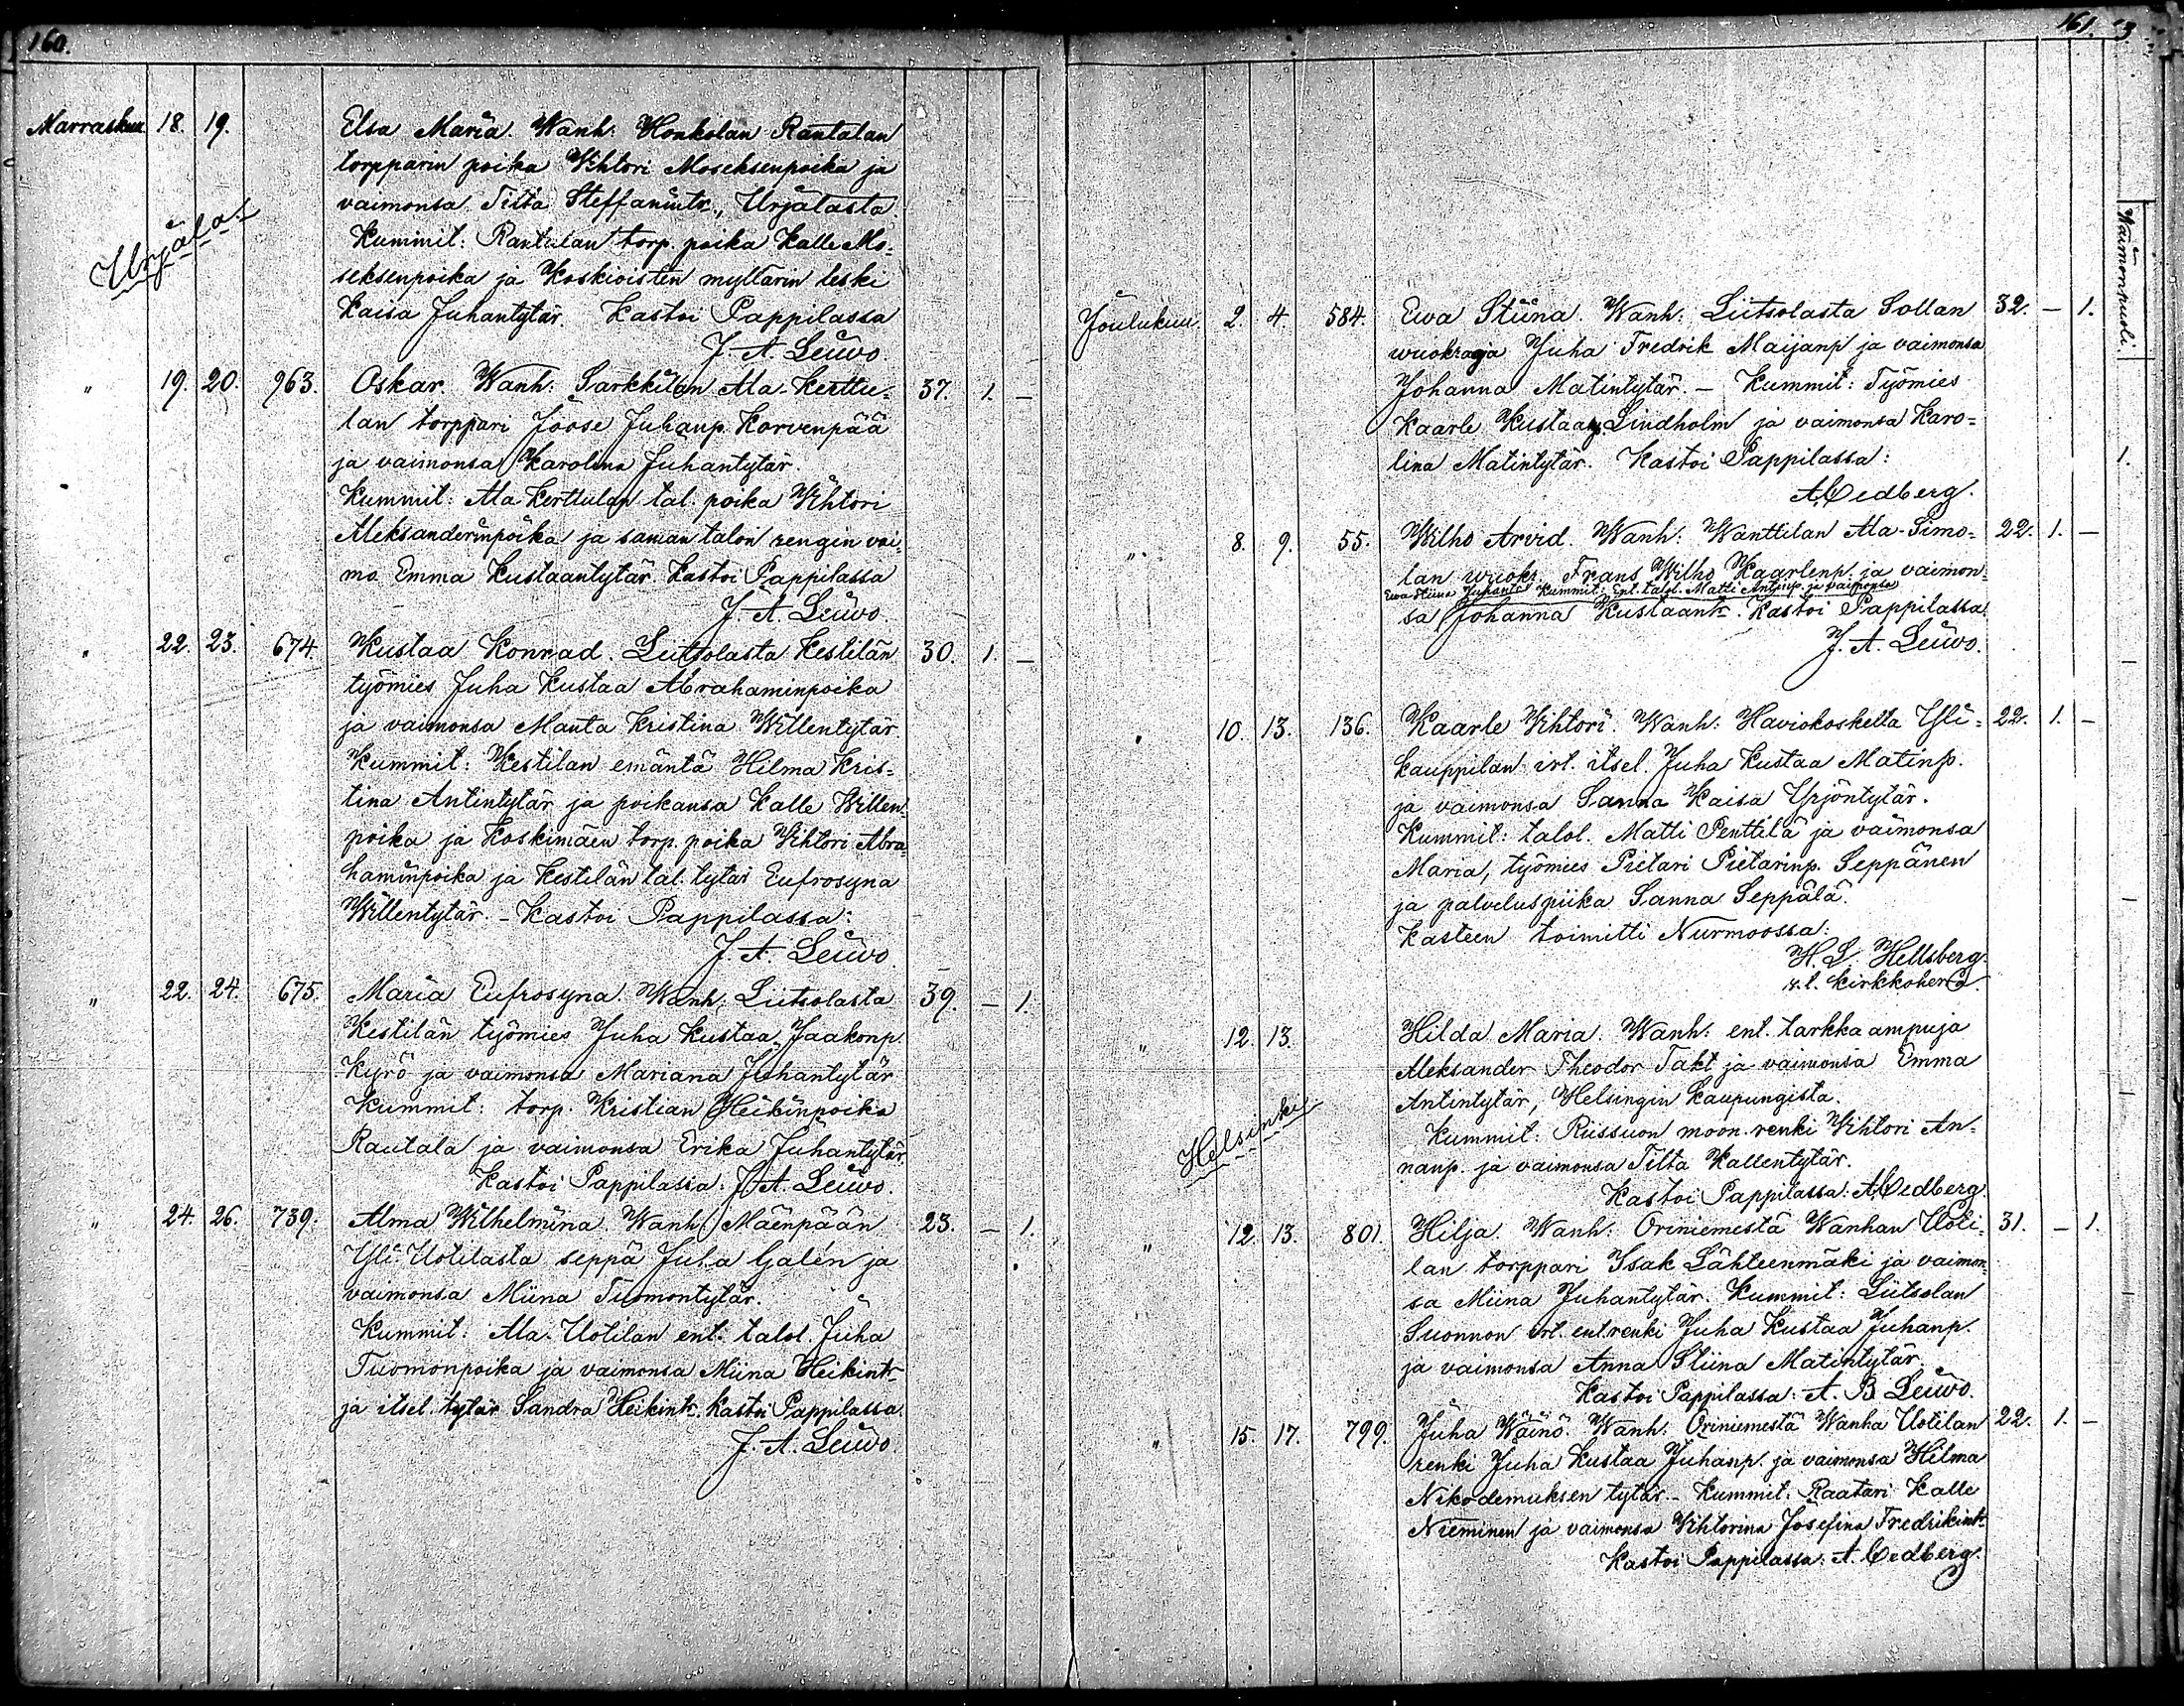 160.
Marraskuu 18. 19. Elsa Maria. Wanh: Honkolan Rantalan
torpparin poika Wihtori Moseksenpoika ja
vaimonsa Tilta Steffanintr., Urjalasta
Urjala:
Kummit: Rantalan torp. poika Kalle Mo-
seksenpoika ja Koskioisten myllärin leski
Kaisa Juhantytär. Kastoi Pappilassa
J. A. Leiwo.
" 19. 20. 963. Oskar. Wanh: Sarkkilan Ala-Kerttu- 37. 1. —
lan torppari Joose Juhanp. Korvenpää
ja vaimonsa Karolina Juhantytär.
Kummit: Ala Kerttulan tal. poika Wihtori
Aleksanderinpoika ja saman talon rengin vai-
mo Emma Kustaantytär. Kastoi Pappilassa
J. A. Leiwo.
" 22. 23. 674. Kustaa Konrad. Liitsolasta Kestilän 30. 1. —
työmies Juha Kustaa Abrahaminpoika
ja vaimonsa Manta Kristina Willentytär
Kummit: Kestilan emäntä Hilma Kris-
tina Antintytär ja poikansa Kalle Willen-
poika ja Koskimäen torp. poika Wihtori Abra-
haminpoika ja Kestilän tal. tytär Eufrosyna
Willentytär. - Kastoi Pappilassa:
J. A. Leiwo
" 22. 24. 675. Maria Eufrosyna. Wanh: Liitsolasta 39. — 1.
Kestilän työmies Juha Kustaa Jaakonp.
Kyrö ja vaimonsa Mariana Juhantytär
Kummit: torp. Kristian Heikinpoika
Rautala ja vaimonsa Erika Juhantytär.
Kastoi Pappilassa: J. A. Leiwo.
" 24. 26. 739. Alma Wilhelmina. Wanh: Mäenpään 23. — 1.
Yli-Uotilasta seppä Juha Galén ja
vaimonsa Miina Tuomontytär.
Kummit: Ala-Uotilan ent. talol. Juha
Tuomonpoika ja vaimonsa Miina Heikintr
ja itsel. tytär Sandra Heikintr. Kastoi Pappilassa.
J. A. Leiwo.
161.
Waimonpuoli.
Joulukuu. 2. 4. 584. Ewa Stiina. Wanh: Liitsolasta Sollan 32. — 1.
wuokraaja Juha Fredrik Maijanp ja vaimonsa
Johanna Matintytär. — Kummit: Työmies
Kaarle Kustaanp. Lindholm ja vaimonsa Karo-
lina Matintytär. Kastoi Pappilassa:
A. Cedberg.
" 8. 9. 55. Wilho Arvid. Wanh: Wanttilan Ala-Simo- 22. 1. —
lan wuokr. Frans Wilho Kaarlenp. ja vaimon-
Ewa Stiina Juhantr Kummit: Ent. talol. Matti Antinp. ja vaimonsa
sa Johanna Kustaantr. Kastoi Pappilassa
J. A. Leiwo.
" 10. 13. 136. Kaarle Wihtori. Wanh: Haviokoskelta Yli- 22. 1. —
Kauppilan irt. itsel. Juha Kustaa Matinp.
ja vaimonsa Sanna Kaisa Yrjöntytär.
Kummit: talol. Matti Penttilä ja vaimonsa
Maria, työmies Pietari Pietarinp. Seppänen
ja palveluspiika Sanna Seppälä.
Kasteen toimitti Nurmoossa:
H. L. Hellsberg.
v. t. kirkkoherra.
" 12. 13. Hilda Maria. Wanh: ent. tarkka ampuja
Aleksander Theodor Takt ja vaimonsa Emma
Antintytär, Helsingin Kaupungista.
Helsinki
Kummit: Riissuon moon. renki Wihtori An-
nanp. ja vaimonsa Tilta Kallentytär.
Kastoi Pappilassa: A. Cedberg.
" 12. 13. 801. Hilja. Wanh: Oriniemestä Wanhan Uoti- 31. — 1.
lan torppari Isak Lähteenmäki ja vaimon-
sa Miina Juhantytär. Kummit: Liitsolan
Suonnon irt. ent. renki Juha Kustaa Juhanp.
ja vaimonsa Anna Stiina Matintytär.
Kastoi Pappilassa: A. B. Leiwo.
" 15. 17. 799. Juha Wäinö. Wanh: Oriniemestä Wanha Uotilan 22. 1. —
renki Juha Kustaa Juhanp. ja vaimonsa Hilma
Nikodemuksen tytär. - Kummit: Raatari Kalle
Nieminen ja vaimonsa Wihtorina Josefina Fredrikintr
Kastoi Pappilassa: A. Cedberg.